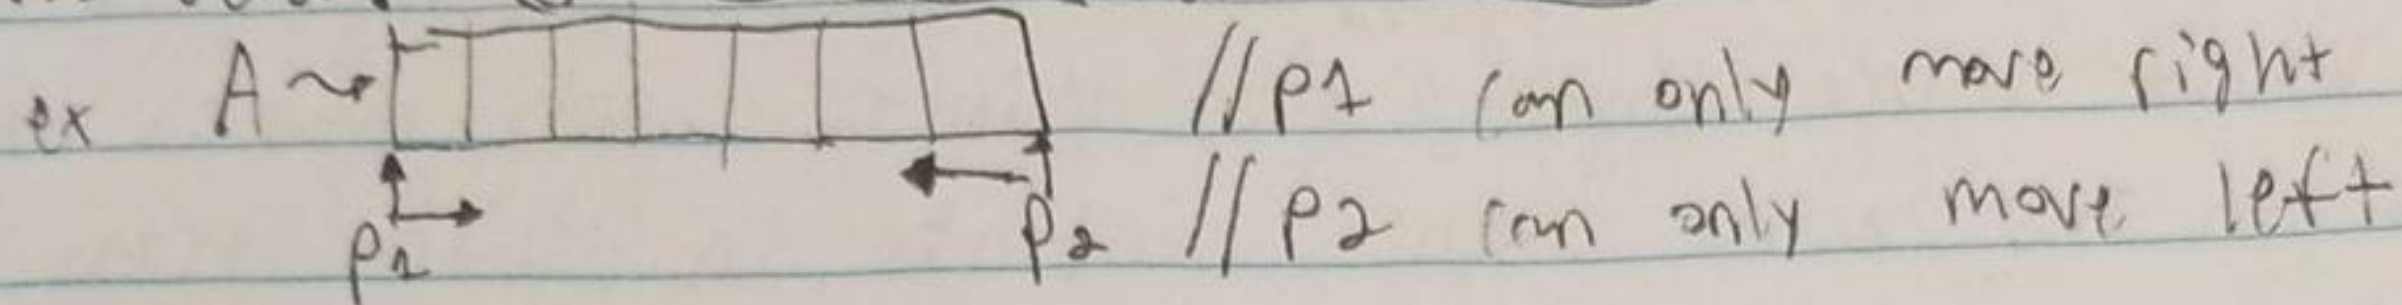 ex A // P1 can only move right
P1 P2 // P2 can only move left